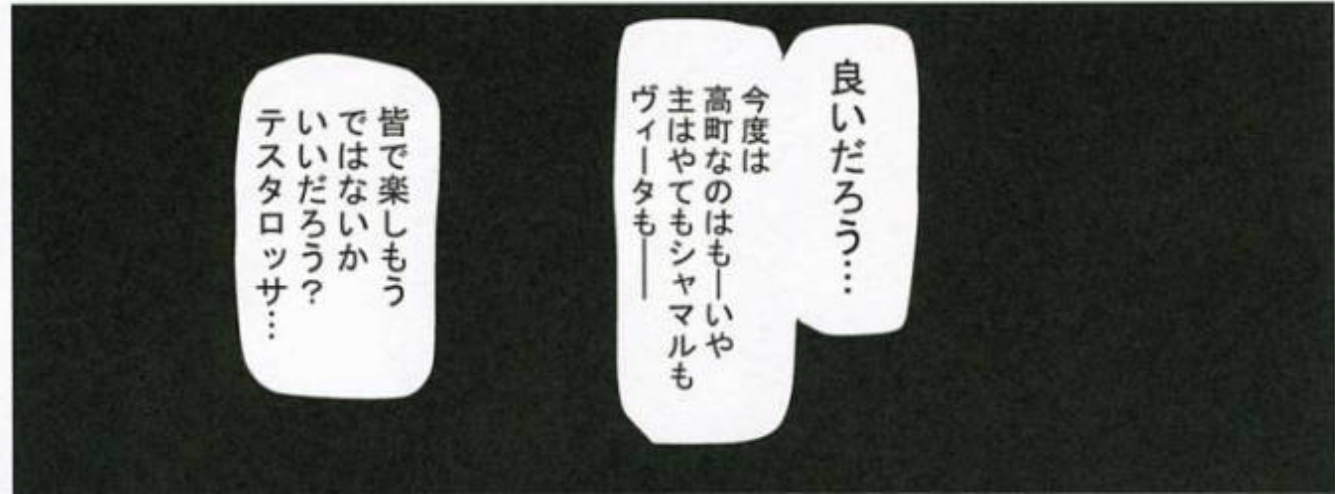 良いだろう…
今度は
高町なのはも―いや
主はやてもシャマルも
ヴィータも――
皆で楽しもう
ではないか
いいだろう？
テスタロッサ…